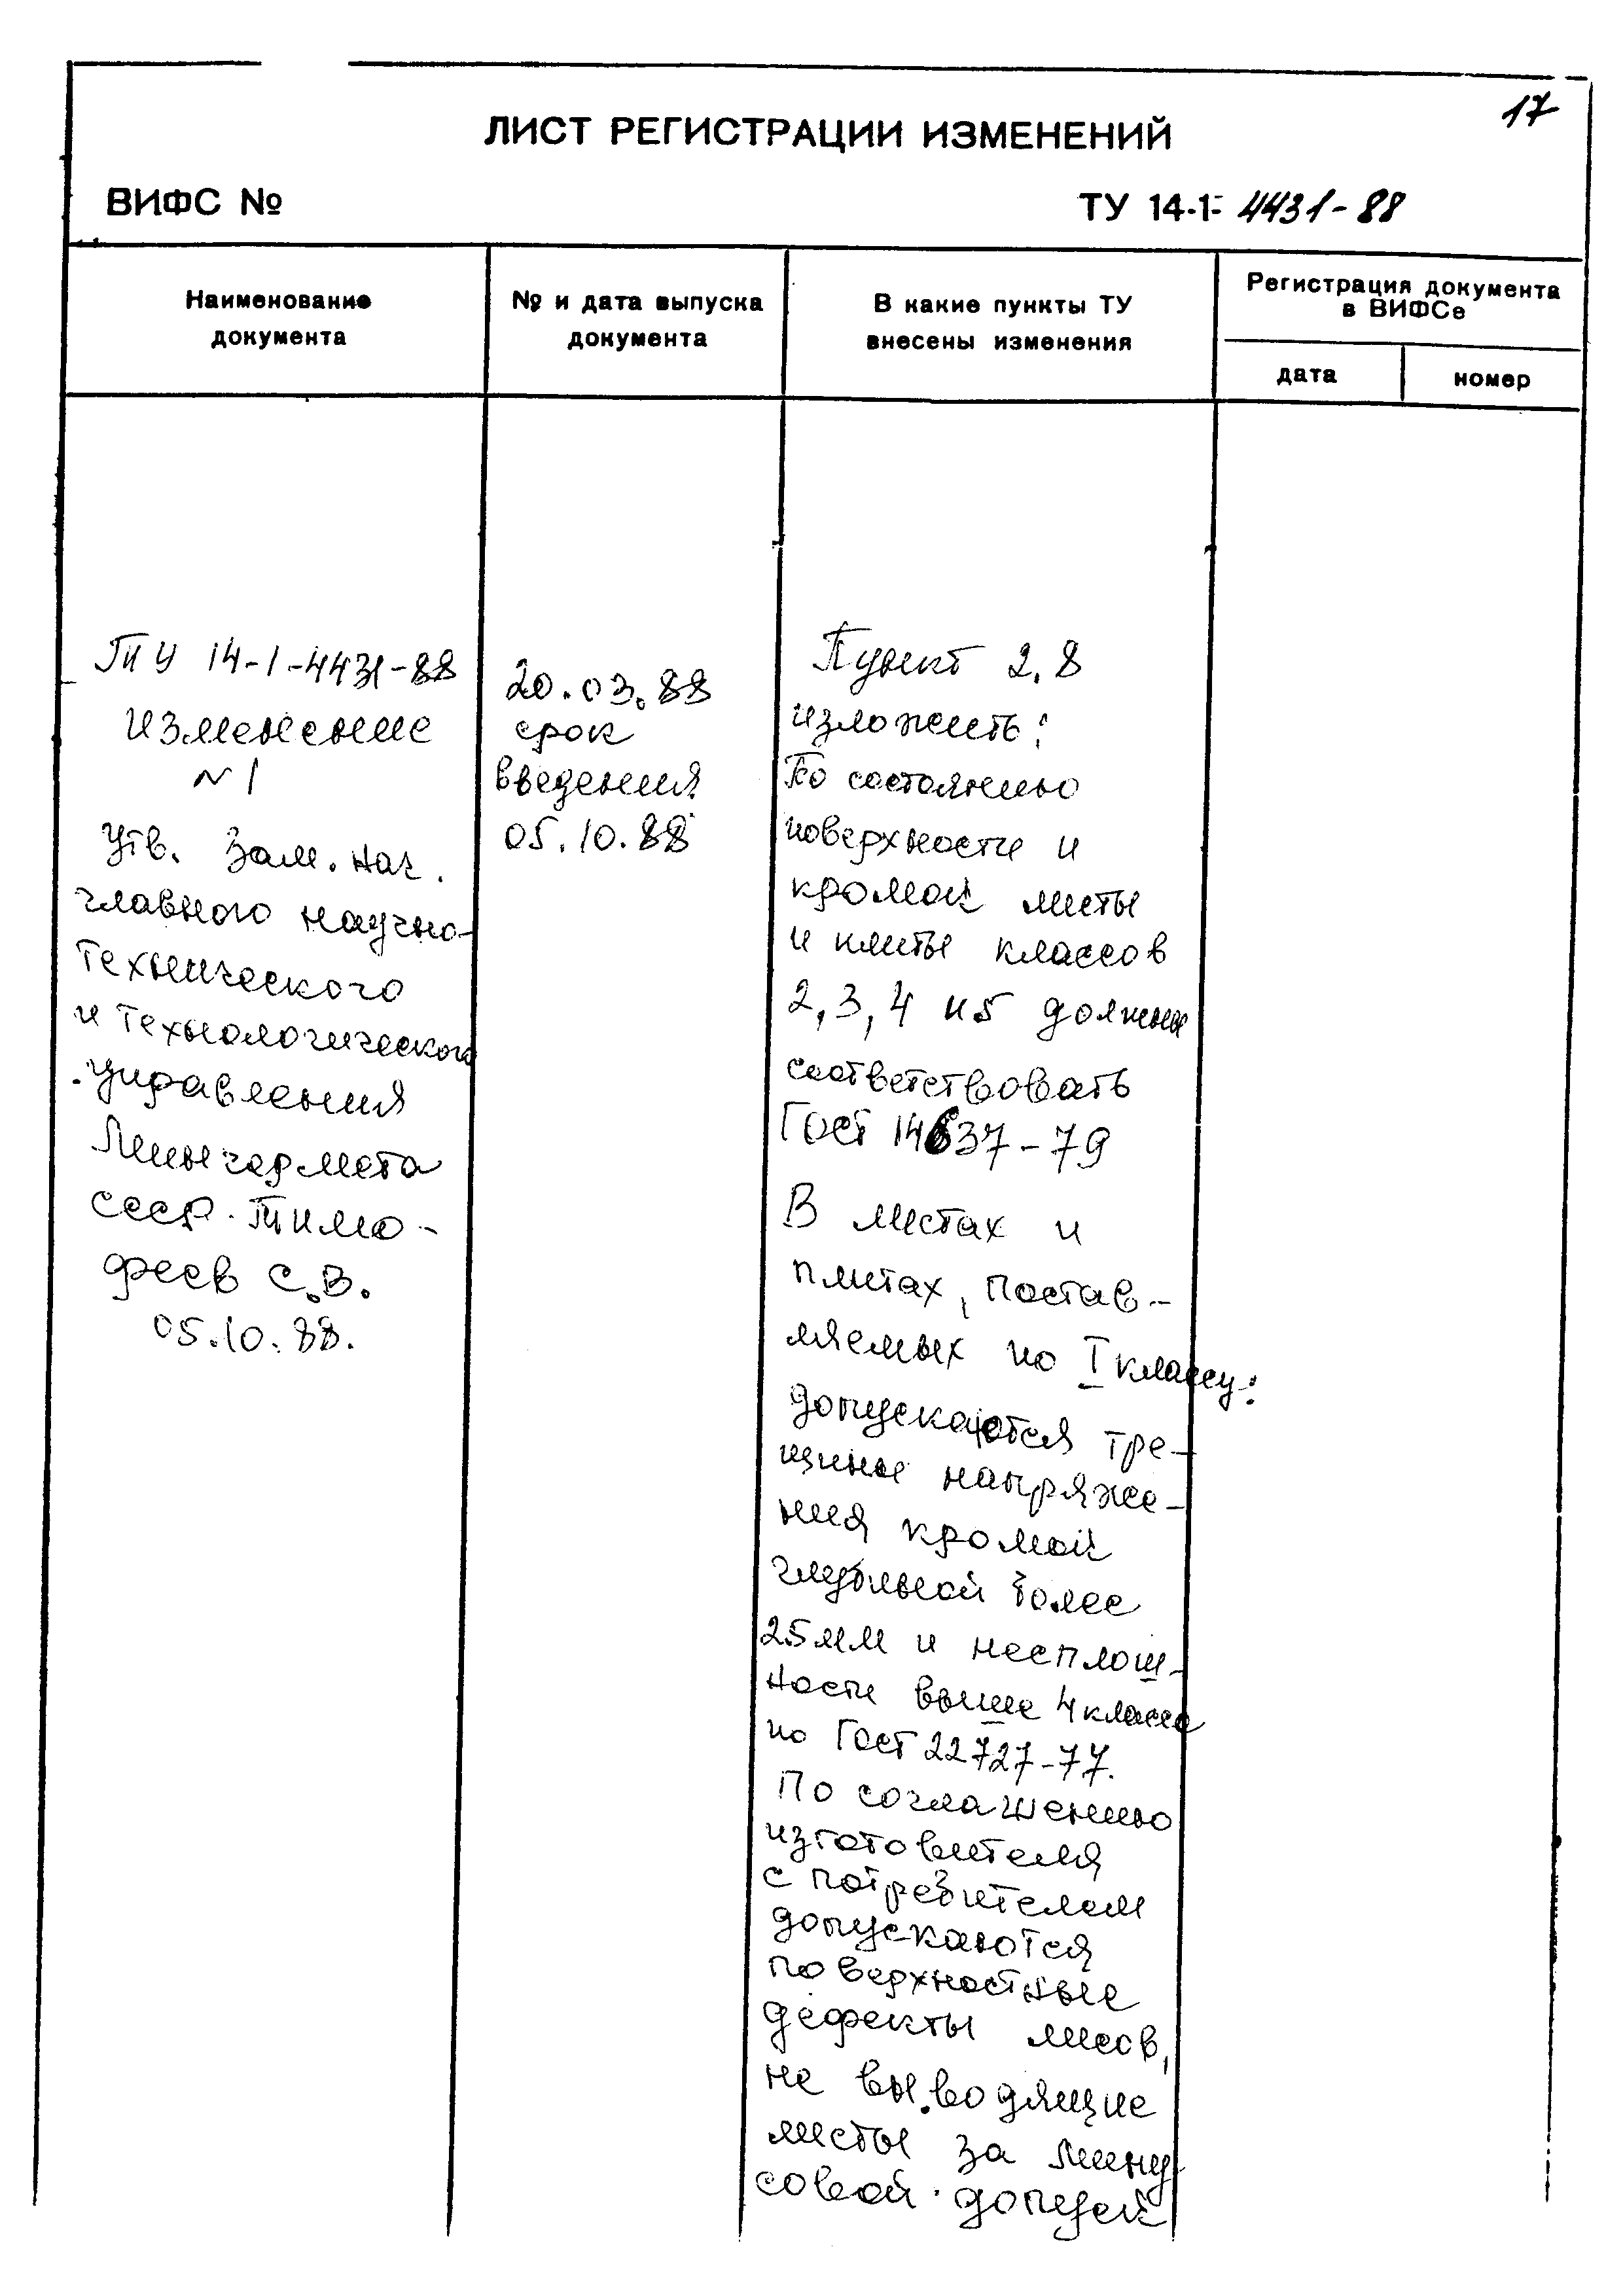 17
ЛИСТ РЕГИСТРАЦИИ ИЗМЕНЕНИЙ
ВИФС №
ТУ 14-1- 4431-88
Наименование
документа
№ и дата выпуска
документа
В какие пункты ТУ
внесены изменения
Регистрация документа
в ВИФСе
дата
номер
ТУ 14-1-4431-88
изменение
№1
Утв. Зам. нач.
главного научно-
технического
и технологического
управления
Минчермета
СССР. Тимо-
феев С.В.
05.10.88.
20.03.88
срок
введения
05.10.88
Пункт 2.8
изложить:
По состоянию
поверхности и
кромок листы
и плиты классов
2, 3, 4 и 5 должны
соответствовать
ГОСТ 14637-79
В листах и
плитах, постав-
ляемых по I классу:
допускаются тре-
щины напряже-
ния кромок
глубиной более
25мм и несплош-
ности выше 4 класса
по ГОСТ 22727-77.
По соглашению
изготовителя
с потребителем
допускаются
поверхностные
дефекты лисов,
не выводящие
листы за мину
совой допуск